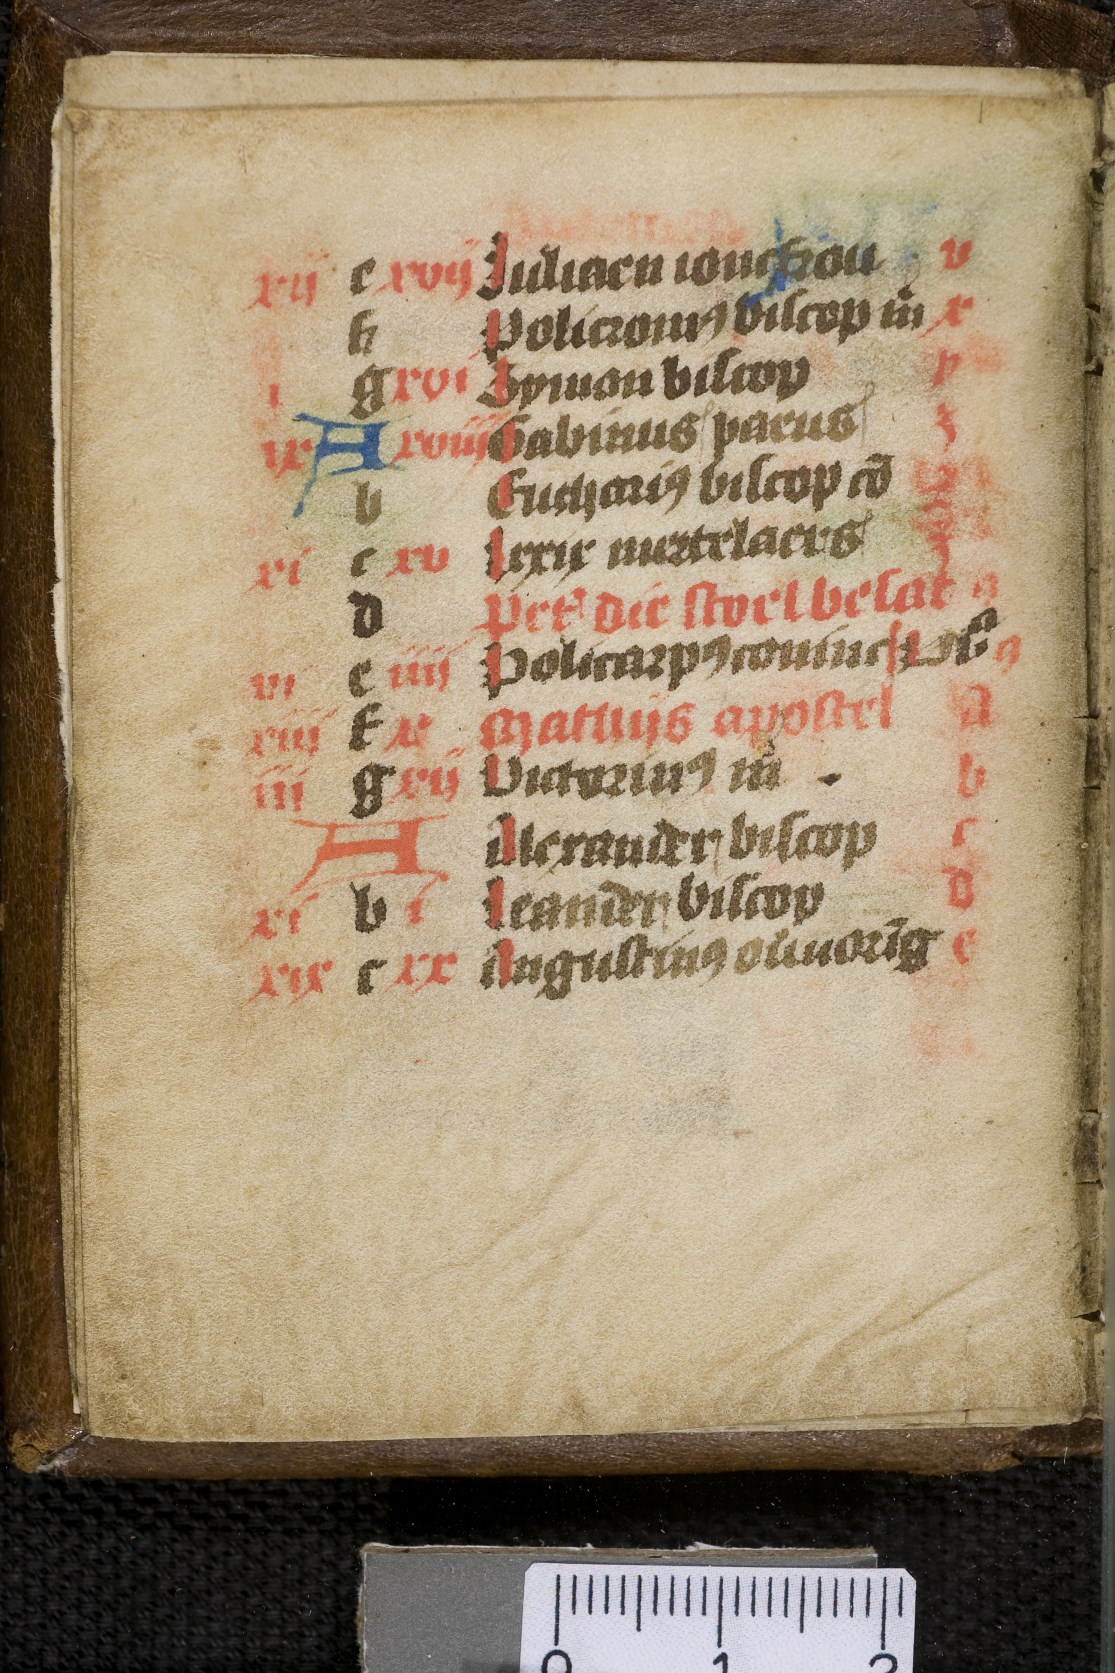 xij e xvij Juliaen ioncfrou v
f Policroniꝰ biscop m̄ x
i g xvi Symon biscop y
ix A xviij Gabinus paeus z
b Euchariꝰ biscop cō
xi c xv lxxix mertelaers
d Petꝰ die stoel besat ꝰ
vi e iiij Policarpꝰ
xiij f x Mathijs apostel A
iij g xij Victoriuꝰ m̄ b
A Alexander biscop c
xi b i Leander biscop d
xix c xx Augustinꝰ e
0 1 2